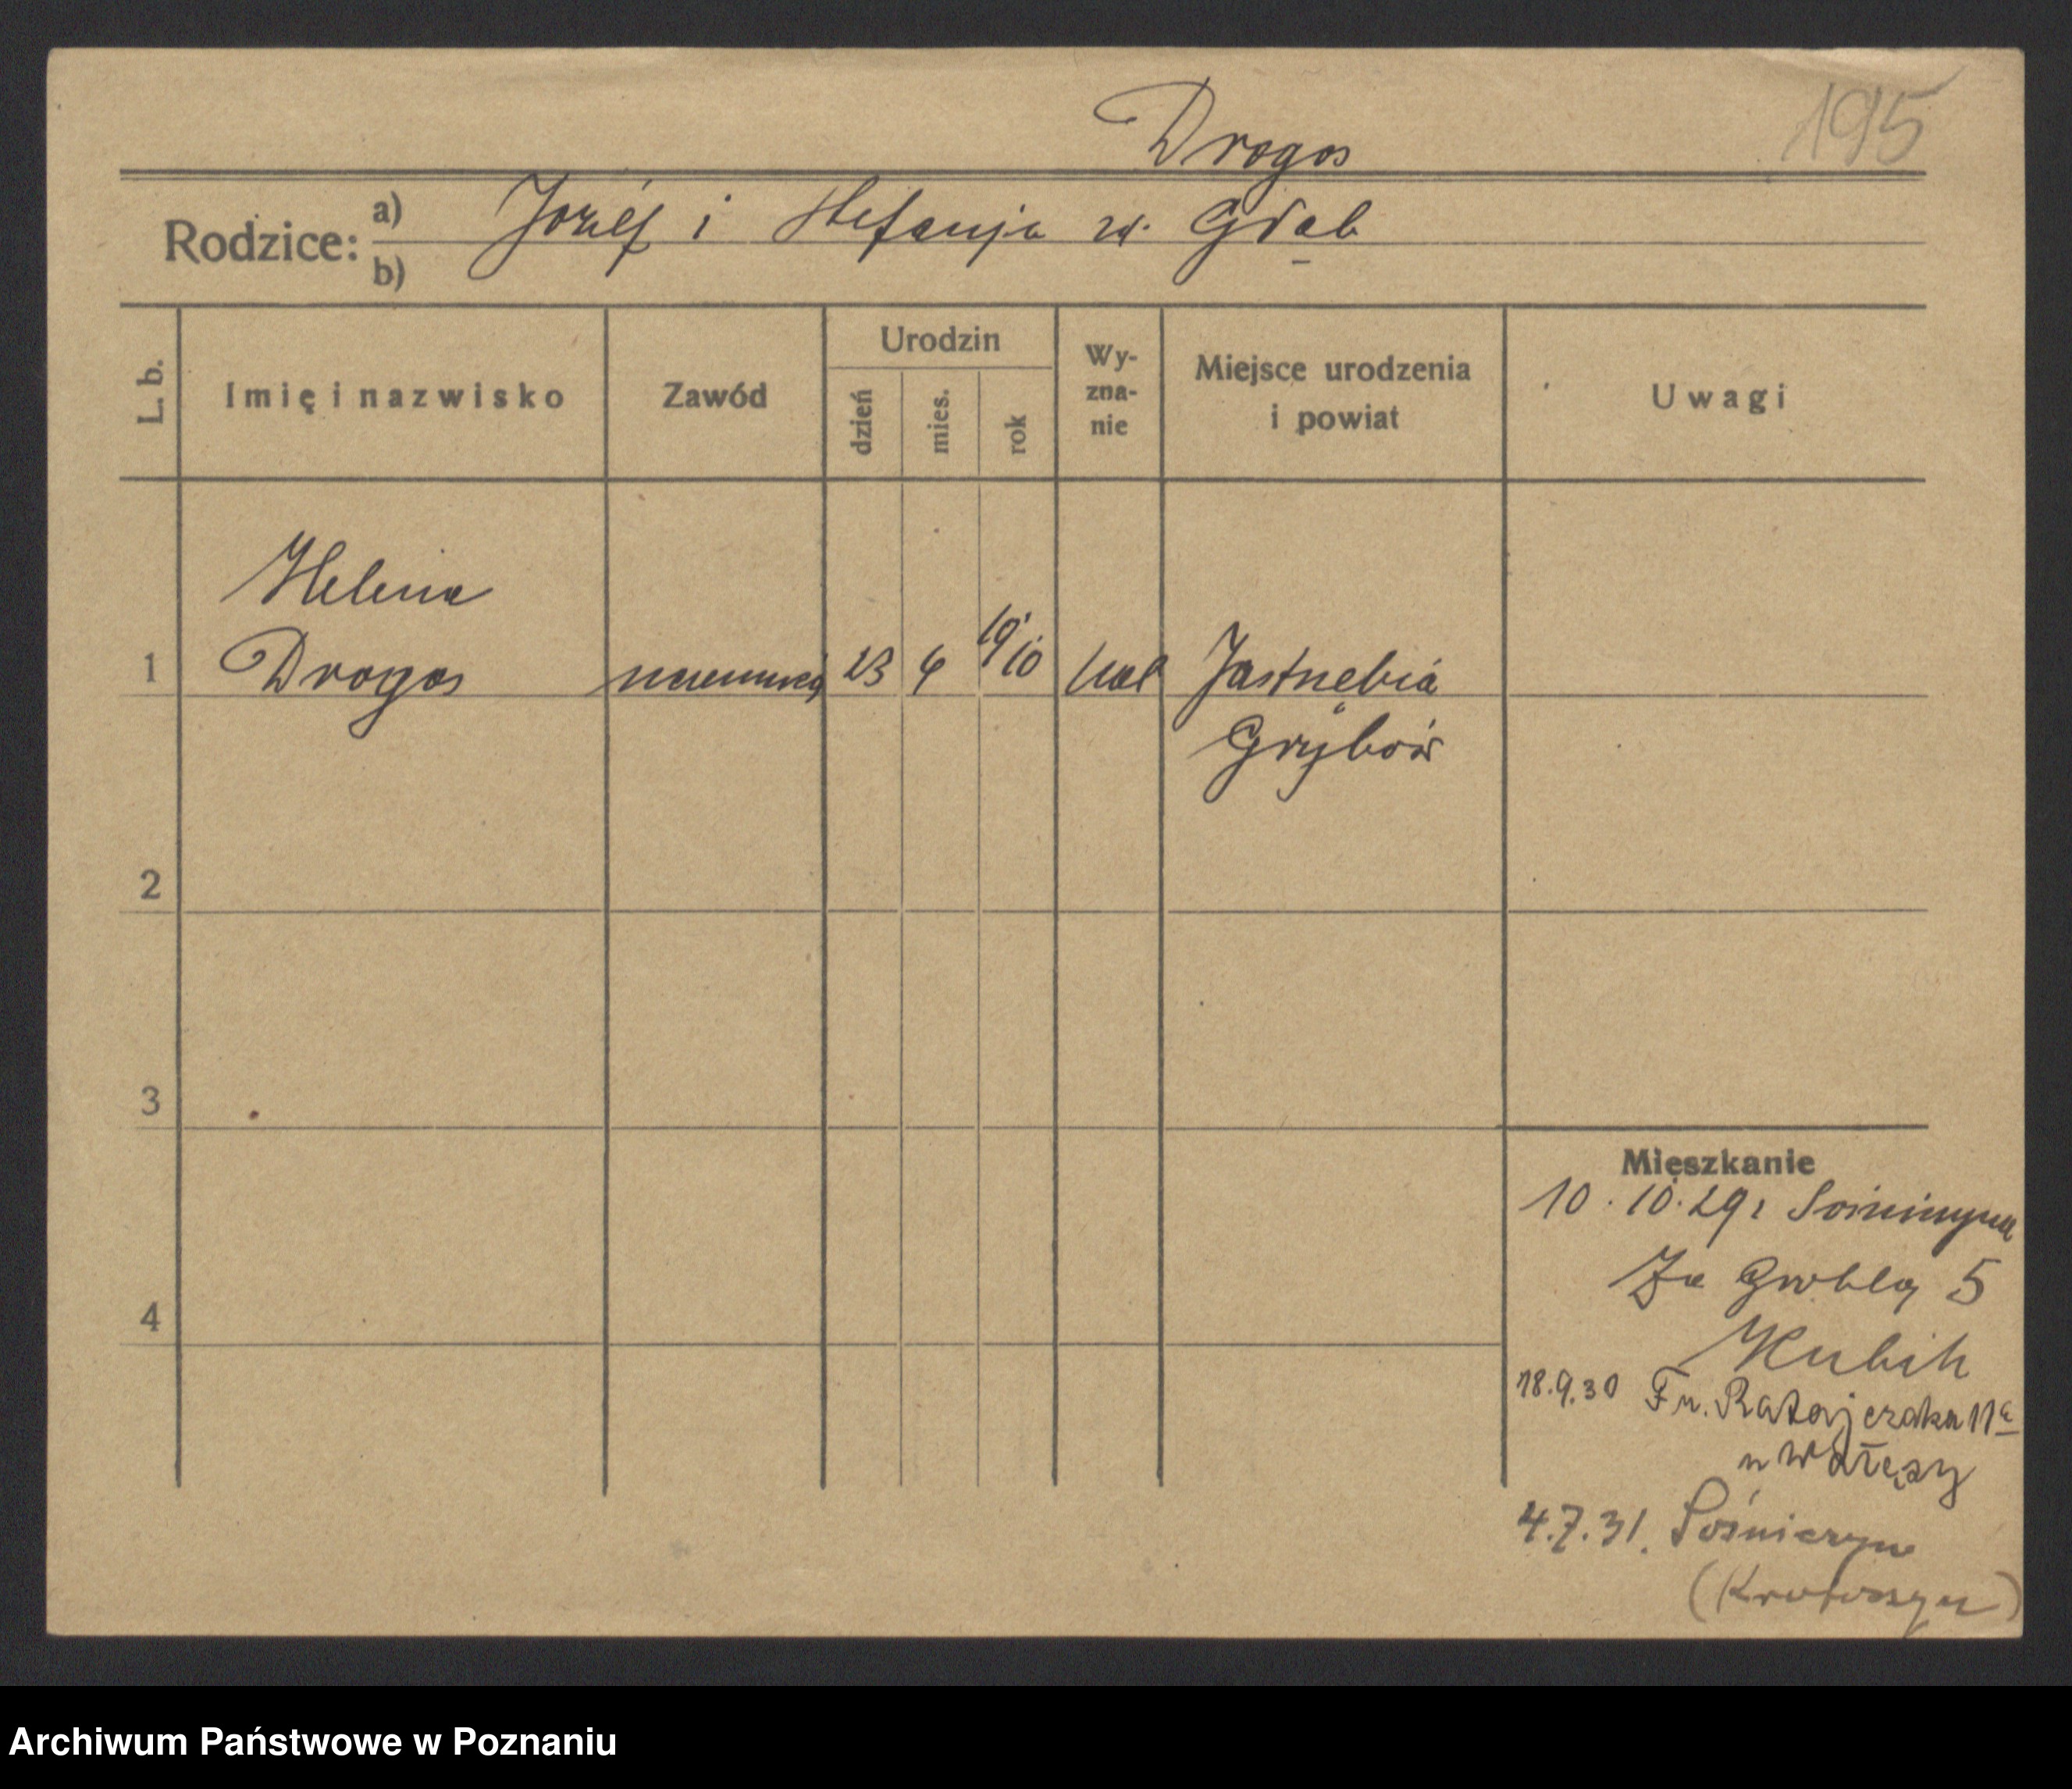 195
Drogos
Rodzice: a) Józéf i Stefanja zd. Gdab
b)
L. b.
Imię i nazwisko
Zawód
Urodzin
dzień
mies.
rok
Wy-
zna-
nie
Miejsce urodzenia
i powiat
Uwagi
Helena
19
1 Drogos 23 10 Jastrzebia
Grybów
2
3
4
Mieszkanie
10.10.29
Za Groblą 5
Kubik
18.9.30 Fr. Ratajczaka 11a
u Wałęsy
4.7.31. Sośniczyn
(Krotoszyn)
Archiwum Państwowe w Poznaniu